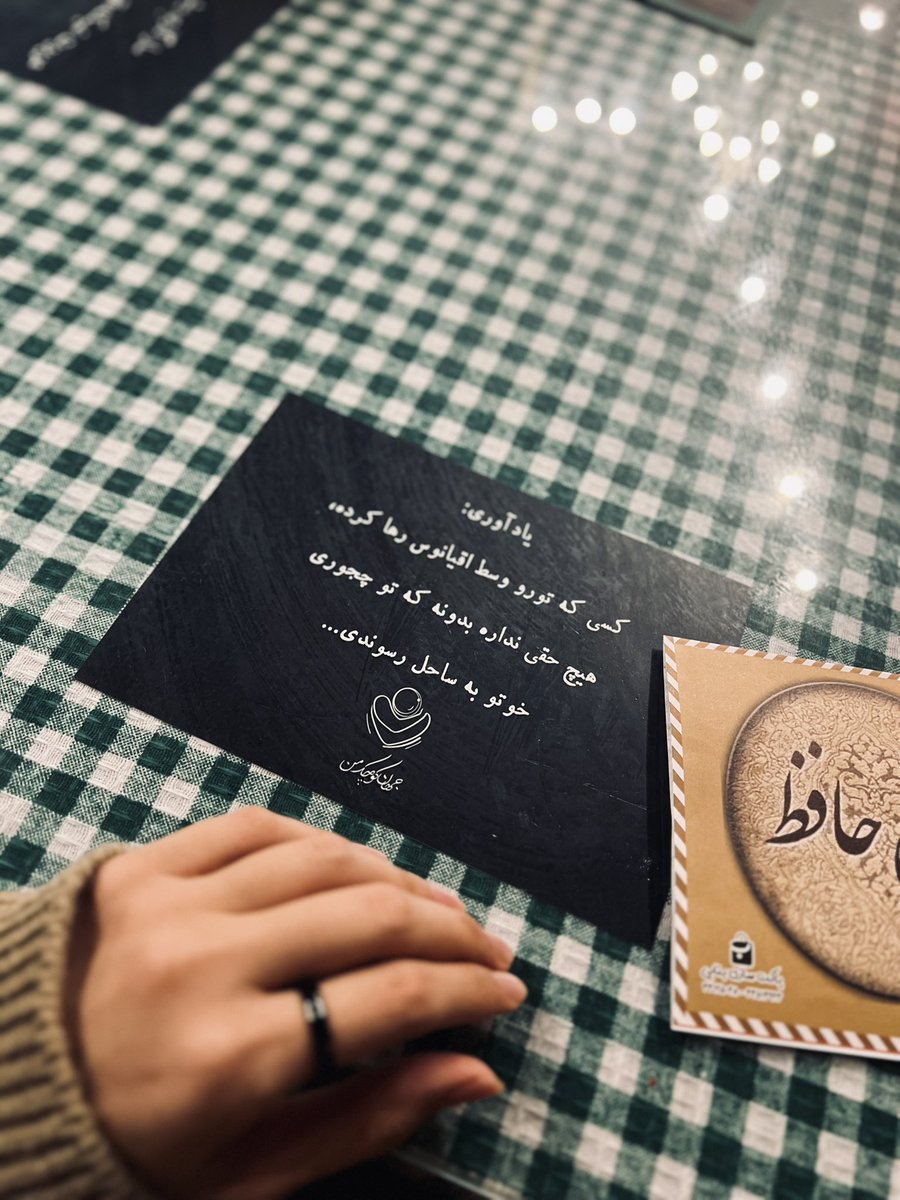 یادآوری:
کسی که تورو وسط اقیانوس رها کرده،
هیچ حقی نداره بدونه که تو چجوری
خوتو به ساحل رسوندی...
کوچک من
حافظ
پاکت سازی